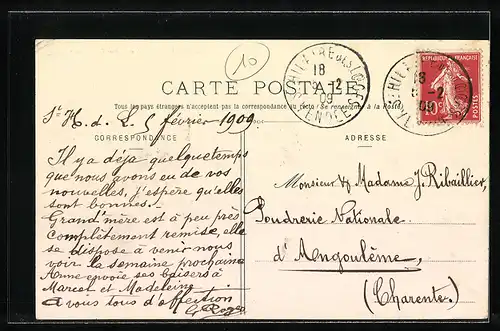 10
CARTE POSTALE
Tous les pays étrangers n'acceptent pas la correspondance au recto (Se renseigner à la Poste)
ST HILAIRE DES LOGES
18
9 -2
09
VENDÉE
REPUBLIQUE FRANÇAISE
10c
POSTES
18
9 -2
09
St H. d. L. 8 février 1909.
CORRESPONDANCE
ADRESSE
Il y a déjà quelque temps
que nous avons eu de vos
nouvelles, j'espère qu'elles
sont bonnes.
Grand'mère est à peu près
complètement remise, elle
se dispose à venir nous
voir la semaine prochaine
Anne envoie ses baisers à
Marcel et Madeleine
à vous tous d'affection
Monsieur & Madame J. Ribaillier,
Poudrerie Nationale
d'Angoulême,
(Charente)